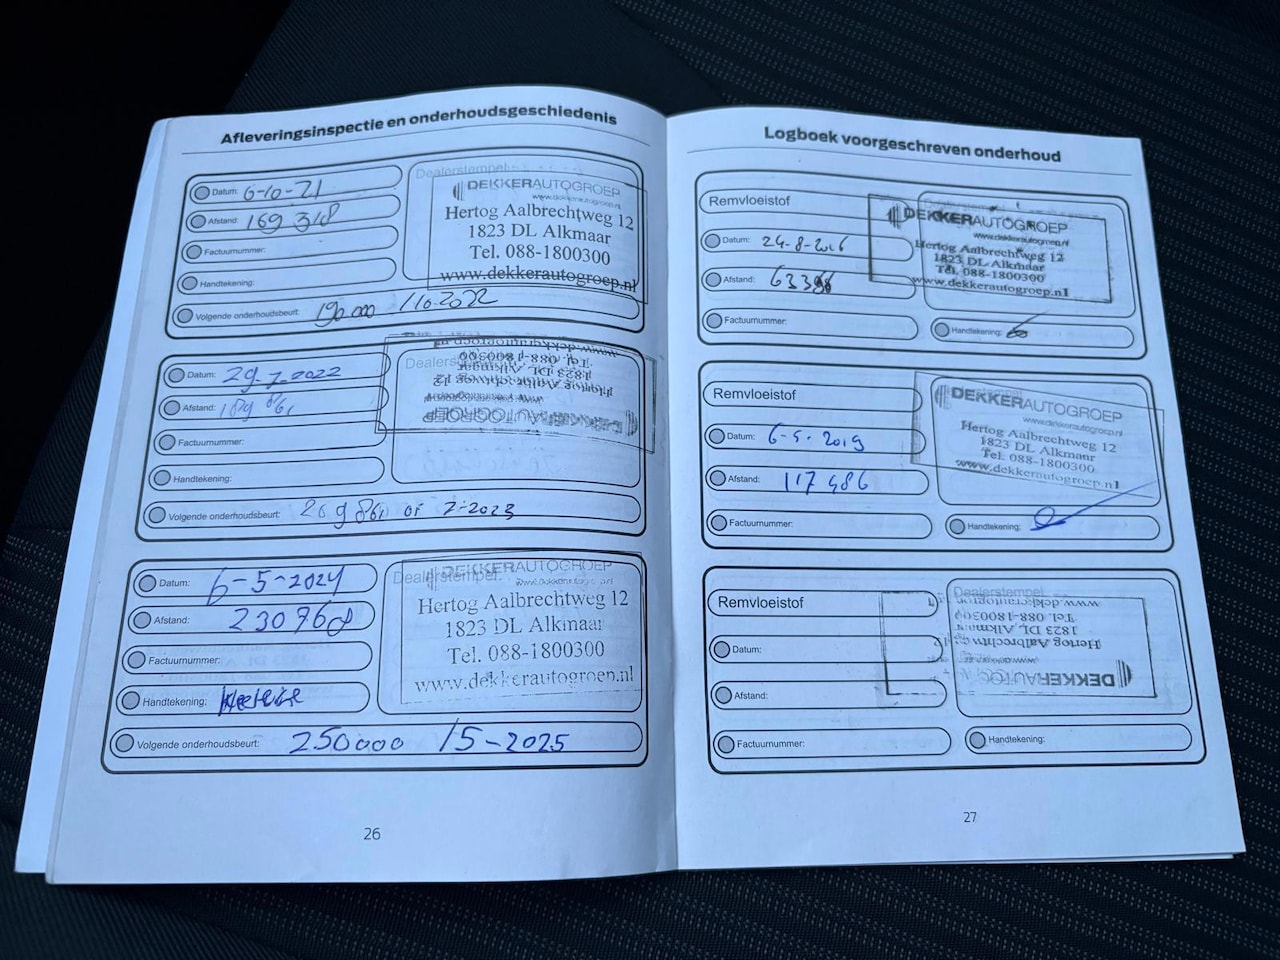 Afleveringsinspectie en onderhoudsgeschiedenis
Datum: 6-10-21
Afstand: 169 348
Factuurnummer:
Handtekening:
Volgende onderhoudsbeurt: 190.000 /10-2022
Dealerstempel:
DEKKERAUTOGROEP
www.dekkerautogroep.nl
Hertog Aalbrechtweg 12
1823 DL Alkmaar
Tel. 088-1800300
www.dekkerautogroep.nl
Datum: 29-7-2022
Afstand: 189 861
Factuurnummer:
Handtekening:
Volgende onderhoudsbeurt: 209 861 of 7-2023
Dealerstempel
DEKKERAUTOGROEP
Hertog Aalbrechtweg 12
1823 DL Alkmaar
Tel. 088-1800300
www.dekkerautogroep.nl
Datum: 6-5-2024
Afstand: 230768
Factuurnummer:
Handtekening:
Volgende onderhoudsbeurt: 250000 /5-2025
Dealerstempel:
DEKKERAUTOGROEP
www.dekkerautogroep.nl
Hertog Aalbrechtweg 12
1823 DL Alkmaar
Tel. 088-1800300
www.dekkerautogroep.nl
26
Logboek voorgeschreven onderhoud
Remvloeistof
Datum: 24-8-2016
Afstand:
Factuurnummer:
Handtekening:
DEKKERAUTOGROEP
www.dekkerautogroep.nl
Hertog Aalbrechtweg 12
1823 DL Alkmaar
Tel. 088-1800300
www.dekkerautogroep.nl
Remvloeistof
Datum: 6-5-2019
Afstand: 117486
Factuurnummer:
Handtekening:
DEKKERAUTOGROEP
www.dekkerautogroep.nl
Hertog Aalbrechtweg 12
1823 DL Alkmaar
Tel. 088-1800300
www.dekkerautogroep.nl
Remvloeistof
Datum:
Afstand:
Factuurnummer:
Handtekening:
Dealerstempel
DEKKERAUTOG
Hertog Aalbrechtweg 12
1823 DL Alkmaar
Tel. 088-1800300
www.dekkerautogroep
27